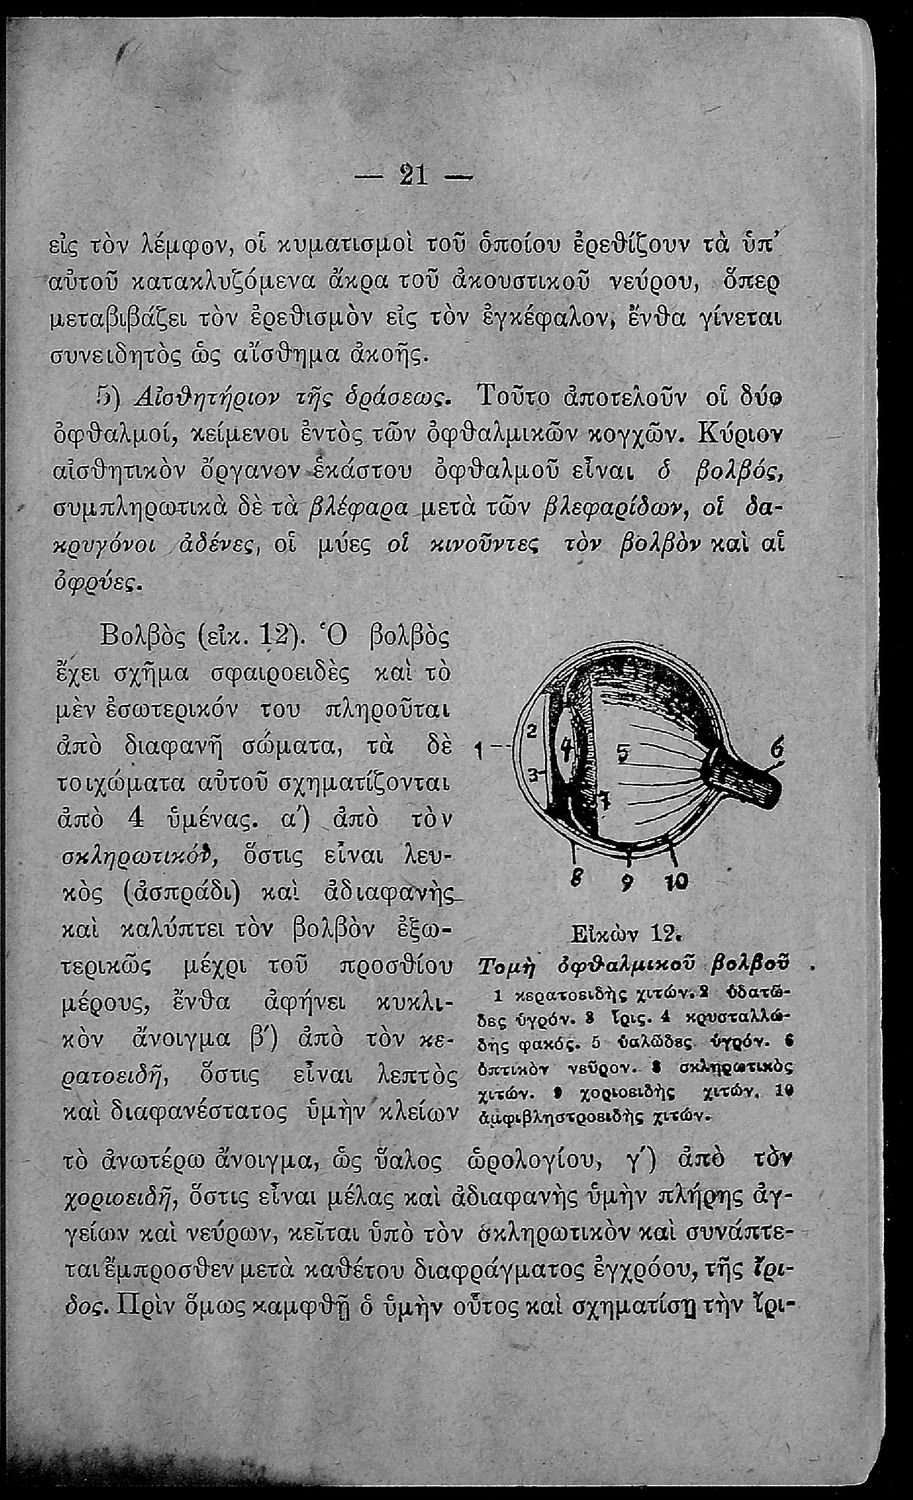 — 21 —
εἰς τὸν λέμφον, οἱ κυματισμοὶ τοῦ ὁποίου ἐρεθίζουν τὰ ὑπ’
αὐτοῦ κατακλυζόμενα ἄκρα τοῦ ἀκουστικοῦ νεύρου, ὅπερ
μεταβιβάζει τὸν ἐρεθισμὸν εἰς τὸν ἐγκέφαλον, ἔνθα γίνεται
συνειδητὸς ὡς αἴσθημα ἀκοῆς.
5) Αἰσθητήριον τῆς ὁράσεως. Τοῦτο ἀποτελοῦν οἱ δύο
ὀφθαλμοί, κείμενοι ἐντὸς τῶν ὀφθαλμικῶν κογχῶν. Κύριον
αἰσθητικὸν ὄργανον ἑκάστου ὀφθαλμοῦ εἶναι ὁ βολβός,
συμπληρωτικὰ δὲ τὰ βλέφαρα μετὰ τῶν βλεφαρίδων, οἱ δα-
κρυγόνοι ἀδένες, οἱ μύες οἱ κινοῦντες τὸν βολβὸν καὶ αἱ
ὀφρύες.
Βολβὸς (εἰκ. 12). Ὁ βολβὸς
ἔχει σχῆμα σφαιροειδὲς καὶ τὸ
μὲν ἐσωτερικόν του πληροῦται
ἀπὸ διαφανῆ σώματα, τὰ δὲ
τοιχώματα αὐτοῦ σχηματίζονται
ἀπὸ 4 ὑμένας. α΄) ἀπὸ τὸν
σκληρωτικόν, ὅστις εἶναι λευ-
κὸς (ἀσπράδι) καὶ ἀδιαφανὴς
καὶ καλύπτει τὸν βολβὸν ἐξω-
τερικῶς μέχρι τοῦ προσθίου
μέρους, ἔνθα ἀφήνει κυκλι-
κὸν ἄνοιγμα β΄) ἀπὸ τὸν κε-
ρατοειδῆ, ὅστις εἶναι λεπτὸς
καὶ διαφανέστατος ὑμὴν κλείων
1 2 3 4 5 6 7
8 9 10
Εἰκὼν 12.
Τομὴ ὀφθαλμικοῦ βολβοῦ
1 κερατοειδὴς χιτών. 2 ὑδατῶ-
δες ὑγρόν. 3 ἶρις. 4 κρυσταλλώ-
δης φακός. 5 ὑαλῶδες ὑγρόν. 6
ὀπτικὸν νεῦρον. 8 σκληρωτικὸς
χιτών. 9 χοριοειδὴς χιτών, 10
ἀμφιβληστροειδὴς χιτών.
τὸ ἀνωτέρω ἄνοιγμα, ὡς ὕαλος ὡρολογίου, γ΄) ἀπὸ τὸν
χοριοειδῆ, ὅστις εἶναι μέλας καὶ ἀδιαφανὴς ὑμὴν πλήρης ἀγ-
γείων καὶ νεύρων, κεῖται ὑπὸ τὸν σκληρωτικὸν καὶ συνάπτε-
ται ἔμπροσθεν μετὰ καθέτου διαφράγματος ἐγχρόου, τῆς ἴρι-
δος. Πρὶν ὅμως καμφθῇ ὁ ὑμὴν οὗτος καὶ σχηματίσῃ τὴν ἴρι-